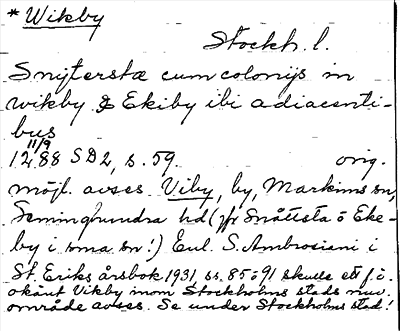 * Wikby
Stockh. l.
Snijterstæ cum colonijs in
wikby & Ekiby ibi adiacenti-
bus
11/9
1288 SD 2, s. 59. orig.
möjl. avses Viby, by, Markims sn,
Seminghundra hd (jfr Snåttsta o Eke-
by i sma sn!) Enl. S. Ambrosiani i
St. Eriks årsbok 1931 ss. 85 o 91 skulle ett f. ö.
okänt Vikby inom Stockholms stads nuv.
område avses. Se under Stockholms stad!